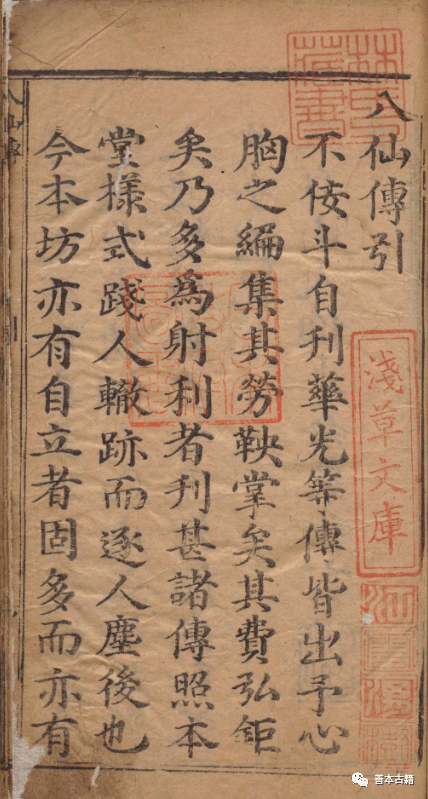 八仙傳引
不佞斗自刊華光等傳皆出予心
胸之編集其勞鞅掌矣其費弘鉅
矣乃多為射利者刊甚諸傳照本
堂樣式踐人轍跡而逐人塵後也
今本坊亦有自立者固多而亦有
八仙傳
林氏藏書
淺草文庫
善本古籍